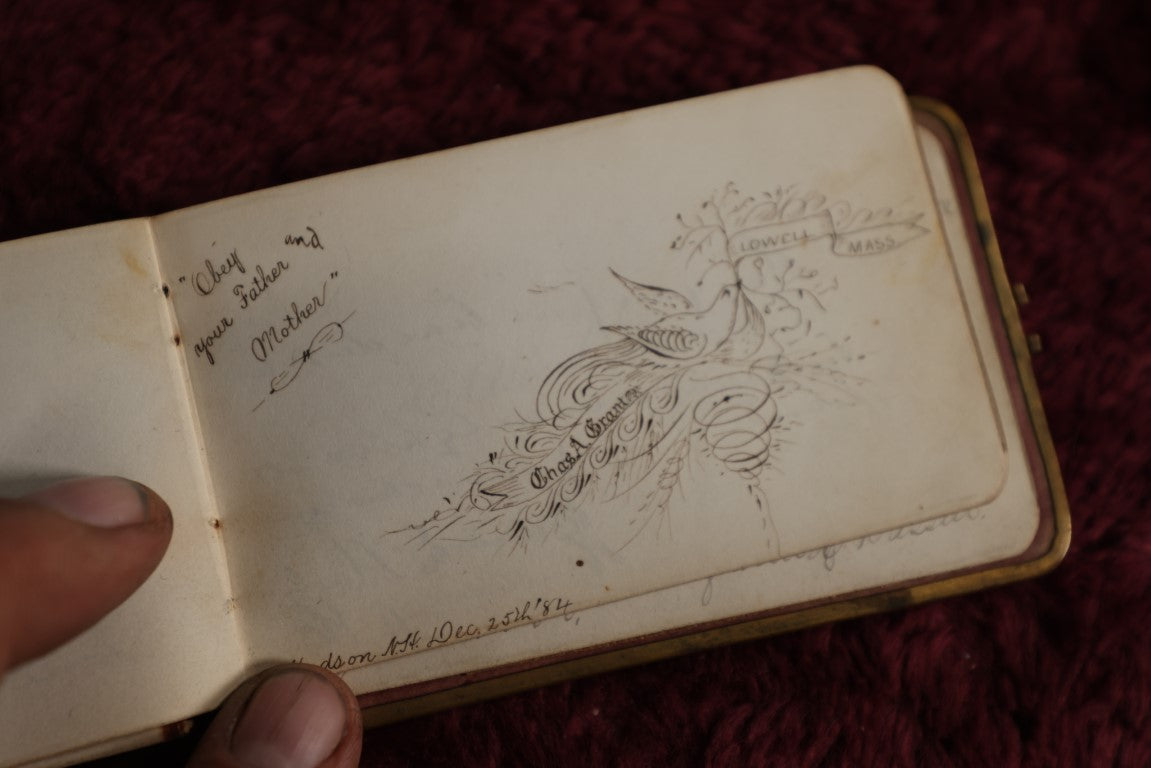 "Obey and
your Father
Mother"
LOWELL MASS
Chas A Grant
Hudson N.H. Dec. 25th '84